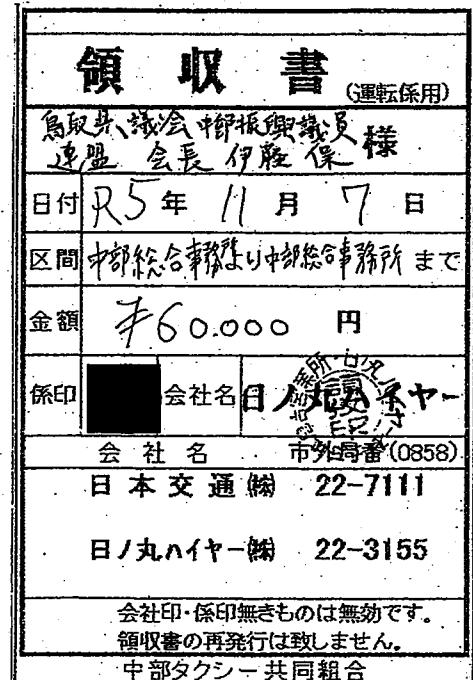 領収書
(運転係用)
鳥取県議会中部振興議員
連盟 会長 伊藤 保 様
日付 R5年 11月 7日
区間 中部総合事務所より中部総合事務所 まで
金額 ¥60.000 円
係印 会社名 日ノ丸ハイヤー
会社名 市外局番(0858)
日本交通㈱ 22-7111
日ノ丸ハイヤー㈱ 22-3155
会社印・係印無きものは無効です。
領収書の再発行は致しません。
中部タクシー共同組合